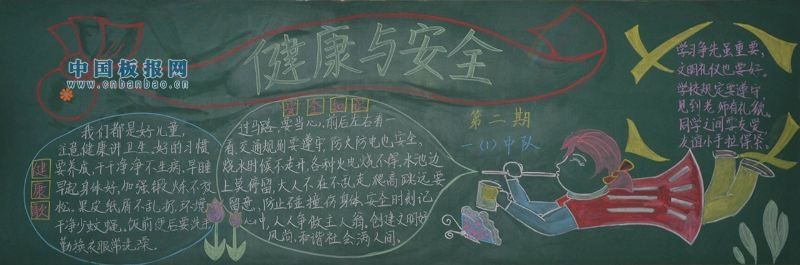 健康与安全
中国板报网
www.cnbanbao.cn
健康歌
我们都是好儿童,
注意健康讲卫生。好的习惯
要养成,干干净净不生病。早睡
早起身体好,加强锻炼不放
松。果皮纸屑不乱扔,环境
干净少蚊蝇。饭前便后要洗手
勤换衣服常洗澡。
安全知识
过马路,要当心,前后左右看一
看,交通规则要遵守,防火防电也安全,
烧水时候不走开,各种火电烧不得,水池边
上莫停留,大人不在不乱走,爬高跳远要
留意,防止碰撞伤身体,安全时刻记
心中,人人争做主人翁,创建文明好
风尚,和谐社会满人间。
第二期
一(1)中队
学习争先虽重要,
文明礼仪也要好。
学校规定要遵守,
见到老师有礼貌。
同学之间要友爱
友谊小手拉得紧。